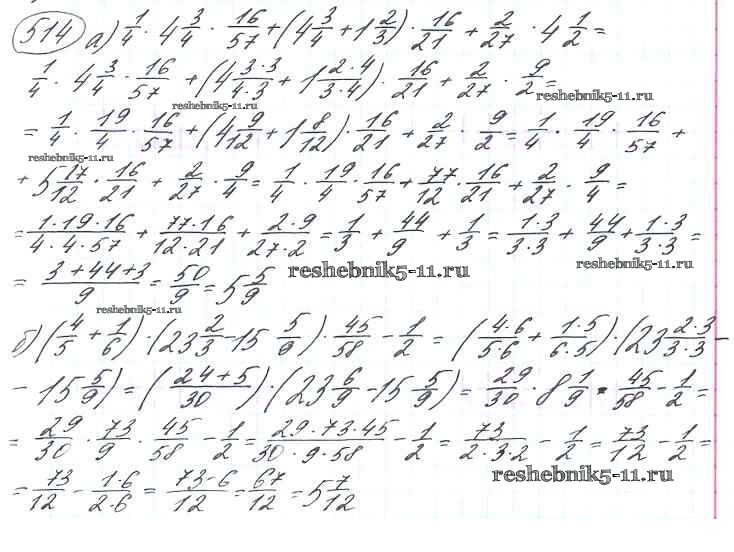 514 а) 1/4 · 4 3/4 · 16/57 + (4 3/4 + 1 2/3) · 16/21 + 2/27 · 4 1/2 =
1/4 · 4 3/4 · 16/57 + (4 3·3/4·3 + 1 2·4/3·4) · 16/21 + 2/27 · 9/2 =
reshebnik5-11.ru reshebnik5-11.ru
= 1/4 · 19/4 · 16/57 + (4 9/12 + 1 8/12) · 16/21 + 2/27 · 9/2 = 1/4 · 19/4 · 16/57 +
reshebnik5-11.ru
+ 5 17/12 · 16/21 + 2/27 · 9/4 = 1/4 · 19/4 · 16/57 + 77/12 · 16/21 + 2/27 · 9/4 =
= 1·19·16/4·4·57 + 77·16/12·21 + 2·9/27·2 = 1/3 + 44/9 + 1/3 = 1·3/3·3 + 44/9 + 1·3/3·3 =
= 3+44+3/9 = 50/9 = 5 5/9 reshebnik5-11.ru reshebnik5-11.ru
reshebnik5-11.ru
б) (4/5 + 1/6) · (23 2/3 - 15 5/9) · 45/58 - 1/2 = (4·6/5·6 + 1·5/6·5) · (23 2·3/3·3 -
- 15 5/9) = (24+5/30) · (23 6/9 - 15 5/9) = 29/30 · 8 1/9 · 45/58 - 1/2 =
= 29/30 · 73/9 · 45/58 - 1/2 = 29·73·45/30·9·58 - 1/2 = 73/2·3·2 - 1/2 = 73/12 - 1/2 =
= 73/12 - 1·6/2·6 = 73-6/12 = 67/12 = 5 7/12 reshebnik5-11.ru